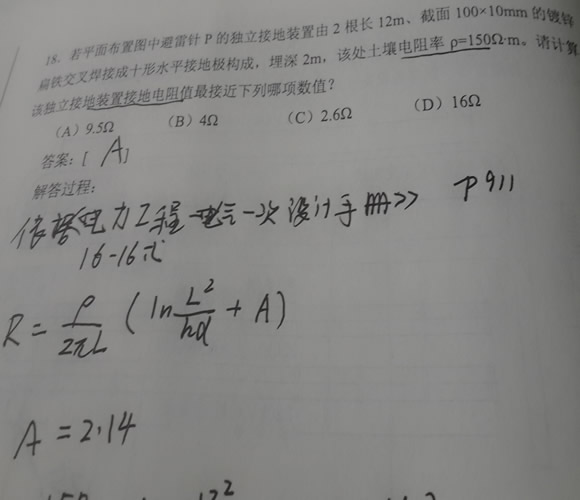 18. 若平面布置图中避雷针 P 的独立接地装置由 2 根长 12m、截面 100×10mm 的镀锌
扁铁交叉焊接成十形水平接地极构成，埋深 2m，该处土壤电阻率 ρ=150Ω·m。请计算
该独立接地装置接地电阻值最接近下列哪项数值？
(A) 9.5Ω (B) 4Ω (C) 2.6Ω (D) 16Ω
答案：[ A ]
解答过程：
依据电力工程电气一次设计手册>> P911
16-16式
R = ρ/2πL (ln L²/hd + A)
A = 2.14